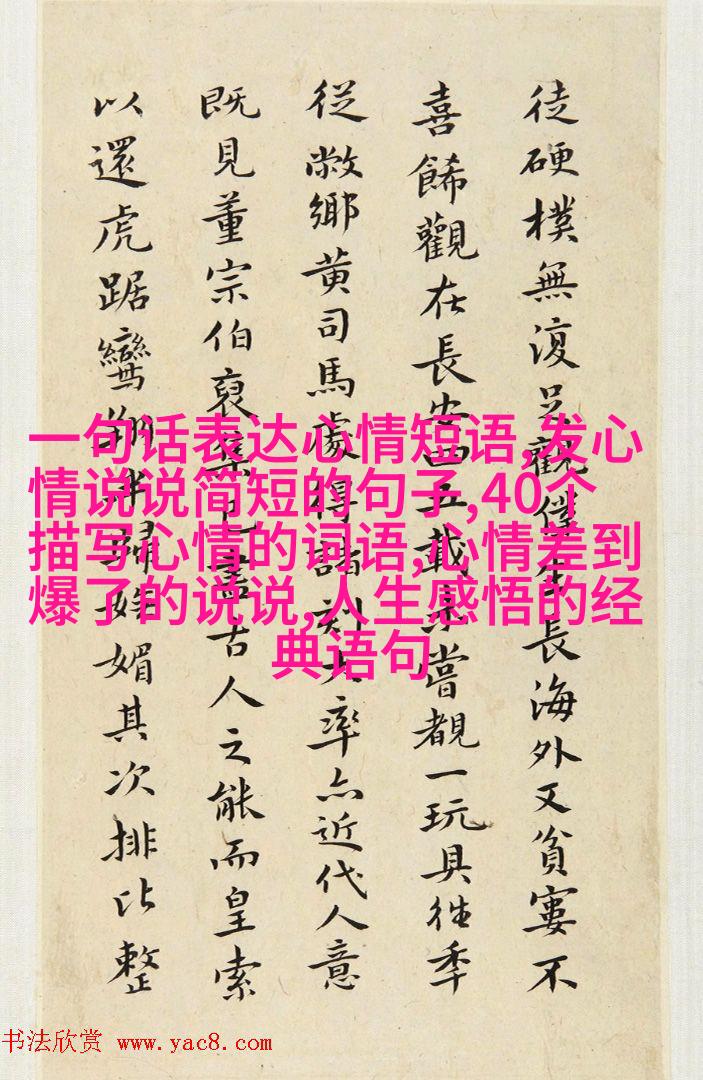 徒硬樸無復足觀僕生長海外又貧寠不
喜餙觀在長安四五載未嘗覩一玩具往季
從敝鄉黄司馬處得諸刻大率亦近代人意
既見董宗伯裒集古人之能而皇索
以還虎踞鸞翔媚其次排比整
一句话表达心情短语,发心
情说说简短的句子,40个
描写心情的词语,心情差到
爆了的说说,人生感悟的经
典语句
书法欣赏 www.yac8.com